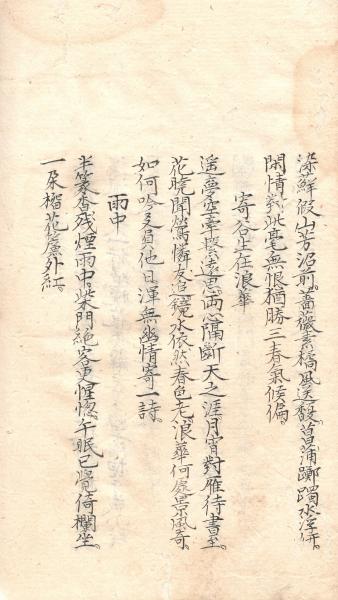 染鮮假山芳沼前。薔薇素橘風送馥。菖蒲躑躅水浮併。
閑情對此毫無恨。猶勝三春氣候偏。
寄谷生在浪華
遙夢空牽擬寄思。両心隔断天之涯。月宵對雁待書至。
花曉聞鶯憐友追。鏡水依然春色老。浪華何處景風奇。
如何吟冬負他日。渾無幽情寄一詩。
雨中
半篆香殘煙雨中。柴門絶客更惺惚。午眠已覺倚欄坐。
一朶榴花簾外紅。